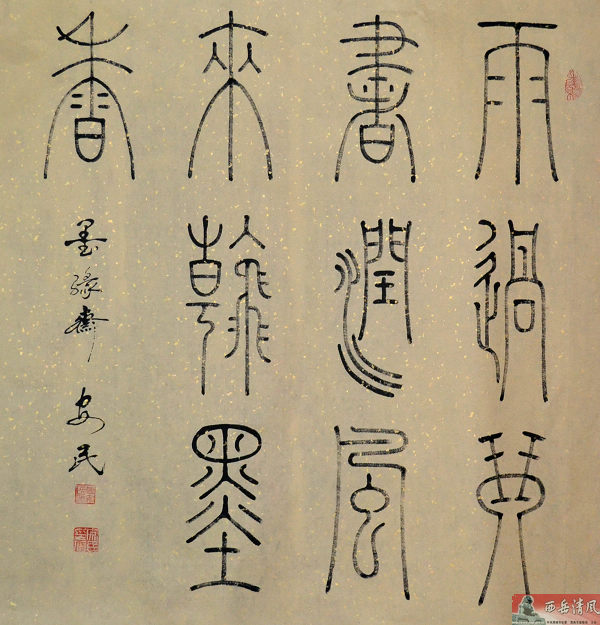 雨過琴
書潤風
来翰墨
香
墨緣齋 安民
西岳清风